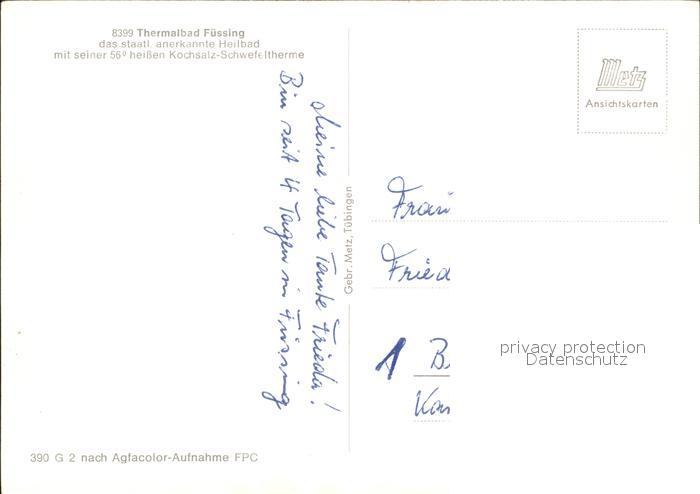 8399 Thermalbad Füssing
das staatl. anerkannte Heilbad
mit seiner 56º heißen Kochsalz-Schwefeltherme
Meine liebe Tante Frieda!
Bin seit 4 Tagen in Füssing
Gebr. Metz, Tübingen
Metz
Ansichtskarten
Frau
Fried
1 B
Kon
privacy protection
Datenschutz
390 G 2 nach Agfacolor-Aufnahme FPC